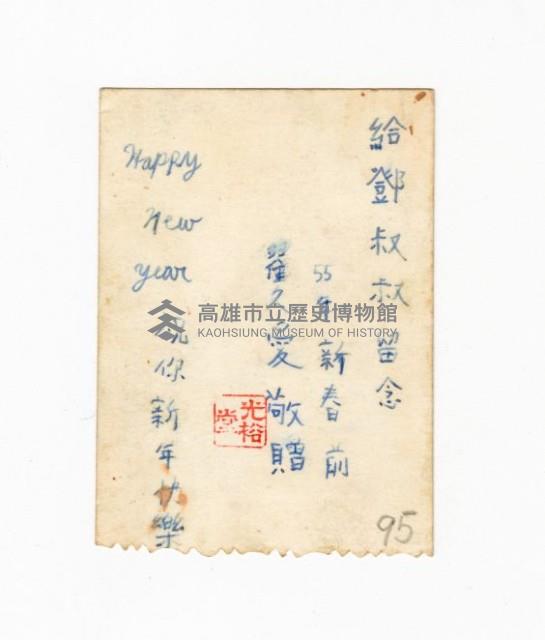 給鄧叔叔留念
55年新春前
愛敬贈
光裕
堂
Happy
New
year
祝你新年快樂
95
高雄市立歷史博物館
KAOHSIUNG MUSEUM OF HISTORY